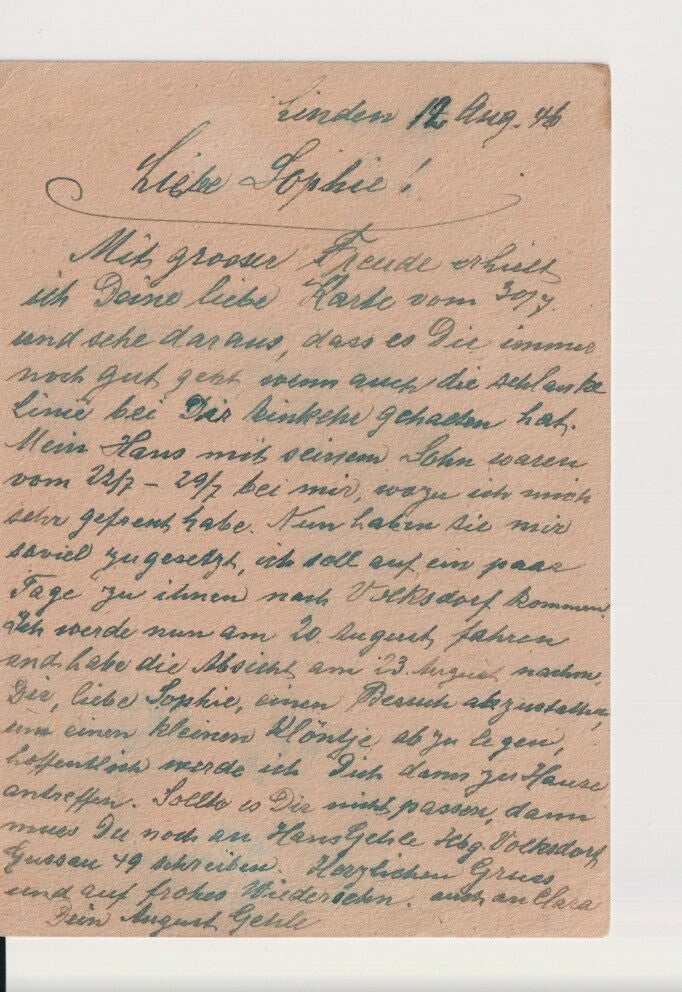 Linden 12 Aug. 46
Liebe Sophie!
Mit grosser Freude erhielt
ich Deine liebe Karte vom 30/7.
und sehe daraus, dass es Dir immer
noch gut geht wenn auch die schlanke
Linie bei Dir Einkehr gehalten hat.
Mein Hans mit seinem Sohn waren
vom 22/7 - 29/7 bei mir, wozu ich mich
sehr gefreut habe. Nun haben sie mir
soviel zugesetzt, ich soll auf ein paar
Tage zu ihnen nach Volksdorf kommen.
Ich werde nun am 20. August fahren
und habe die Absicht am 23. August nachm.
Dir, liebe Sophie, einen Besuch abzustatten,
um einen kleinen Klöntje abzulegen,
hoffentlich werde ich Dich dann zu Hause
antreffen. Sollte es Dir nicht passen, dann
muss Du noch an Hans Gehle Hbg. Volksdorf
Gussau 49 schreiben. Herzlichen Gruss
und auf frohes Wiedersehn. auch an Clara
Dein August Gehle